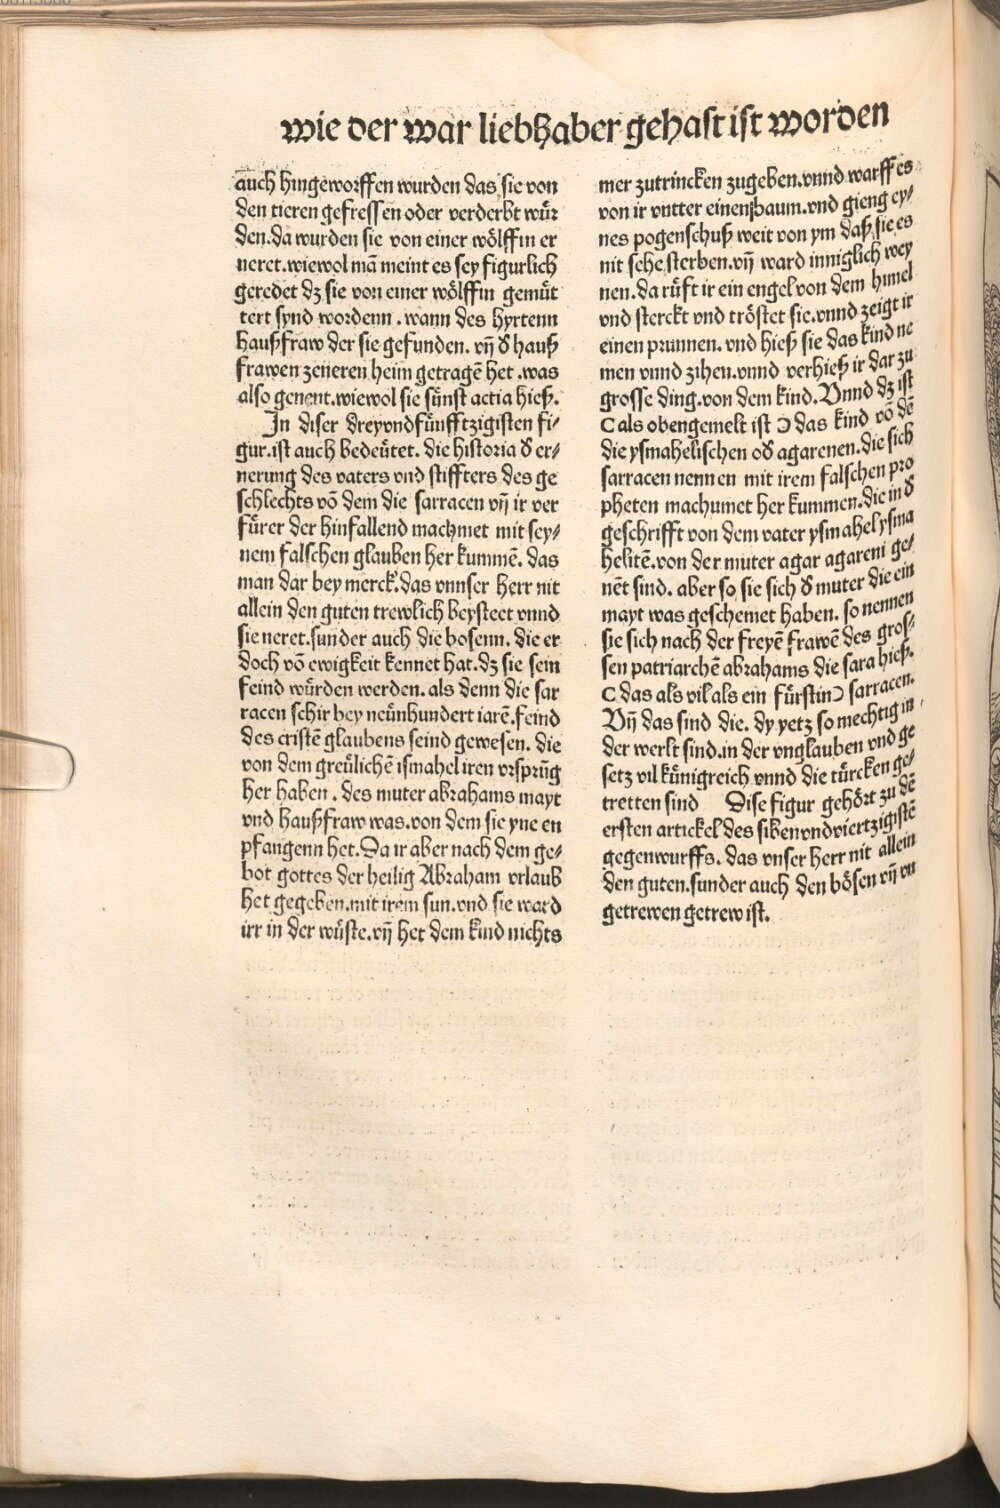 wie der war liebhaber gehast ist worden
auch hingeworffen wurden das sie von
den tieren gefressen oder verderbt wür
den.da wurden sie von einer wölffin er
neret.wiewol mā meint es sey figurlich
geredet dz sie von einer wölffin gemüt
tert synd wordenn . wann des hyrtenn
haußfraw der sie gefunden. vn̄ ð hauß
frawen zeneren heim getragē het .was
also genent.wiewol sie sünst actia hieß.
In diser dreyvndfünfftzigisten fi⸗
gur.ist auch bedeütet. die historia ð er⸗
nerung des vaters vnd stiffters des ge
schlechts vō dem die sarracen vn̄ ir ver
fürer der hinfallend machmet mit sey⸗
nem falschen glauben her kummē. das
man dar bey merck.das vnnser herr nit
allein den guten trewlich beysteet vnnd
sie neret.sunder auch die bosenn. die er
doch vō ewigkeit kennet hat.dz sie sein
feind würden werden. als denn die sar
racen schir bey neünhundert iarē.feind
des cristē glaubens seind gewesen. die
von dem greülichē ismahel iren vrsprūg
her haben . des muter abrahams mayt
vnd haußfraw was.von dem sie yne en
pfangenn het.Da ir aber nach dem ge⸗
bot gottes der heilig Abraham vrlaub
het gegeben.mit irem sun.vnd sie ward
irr in der wüste.vn̄ het dem kind nichts
mer zutrincken zugeben.vnnd warff es
von ir vntter einen baum.vnd gieng ey⸗
nes pogenschuß weit von ym daß sie es
nit sehe sterben.vn̄ ward inniglich wey
nen.da rüfft ir ein engel von dem himel
vnd sterckt vnd tröstet sie.vnnd zeigt ir
einen prunnen. vnd hieß sie das kind ne
men vnnd zihen.vnnd verhieß ir dar zu
grosse ding.von dem kind.Vnnd dz ist
( als obengemelt ist ) das kind vō dē
die ysmahelischen oð agarenen.die sich
sarracen nennen mit irem falschen pro
pheten machumet her kummen.die in ð
geschrifft von dem vater ysmahel ysma
helitē.von der muter agar agareni ge⸗
nēt sind. aber so sie sich ð muter die ein
mayt was geschemet haben. so nennen
sie sich nach der freyē frawē des gros⸗
sen patriarchē abrahams die sara hieß.
( das als vil als ein fürstin) sarracen.
Vn̄ das sind die. dy yetz so mechtig in
der werlt sind.in der vnglauben vnd ge
setz vil künigreich vnnd die türcken ge⸗
tretten sind Dise figur gehört zu dē
ersten artickel des sibenvndviertzigistē
gegenwurffs. das vnser herr nit allein
den guten.sunder auch den bösen vn̄ vn
getrewen getrew ist.